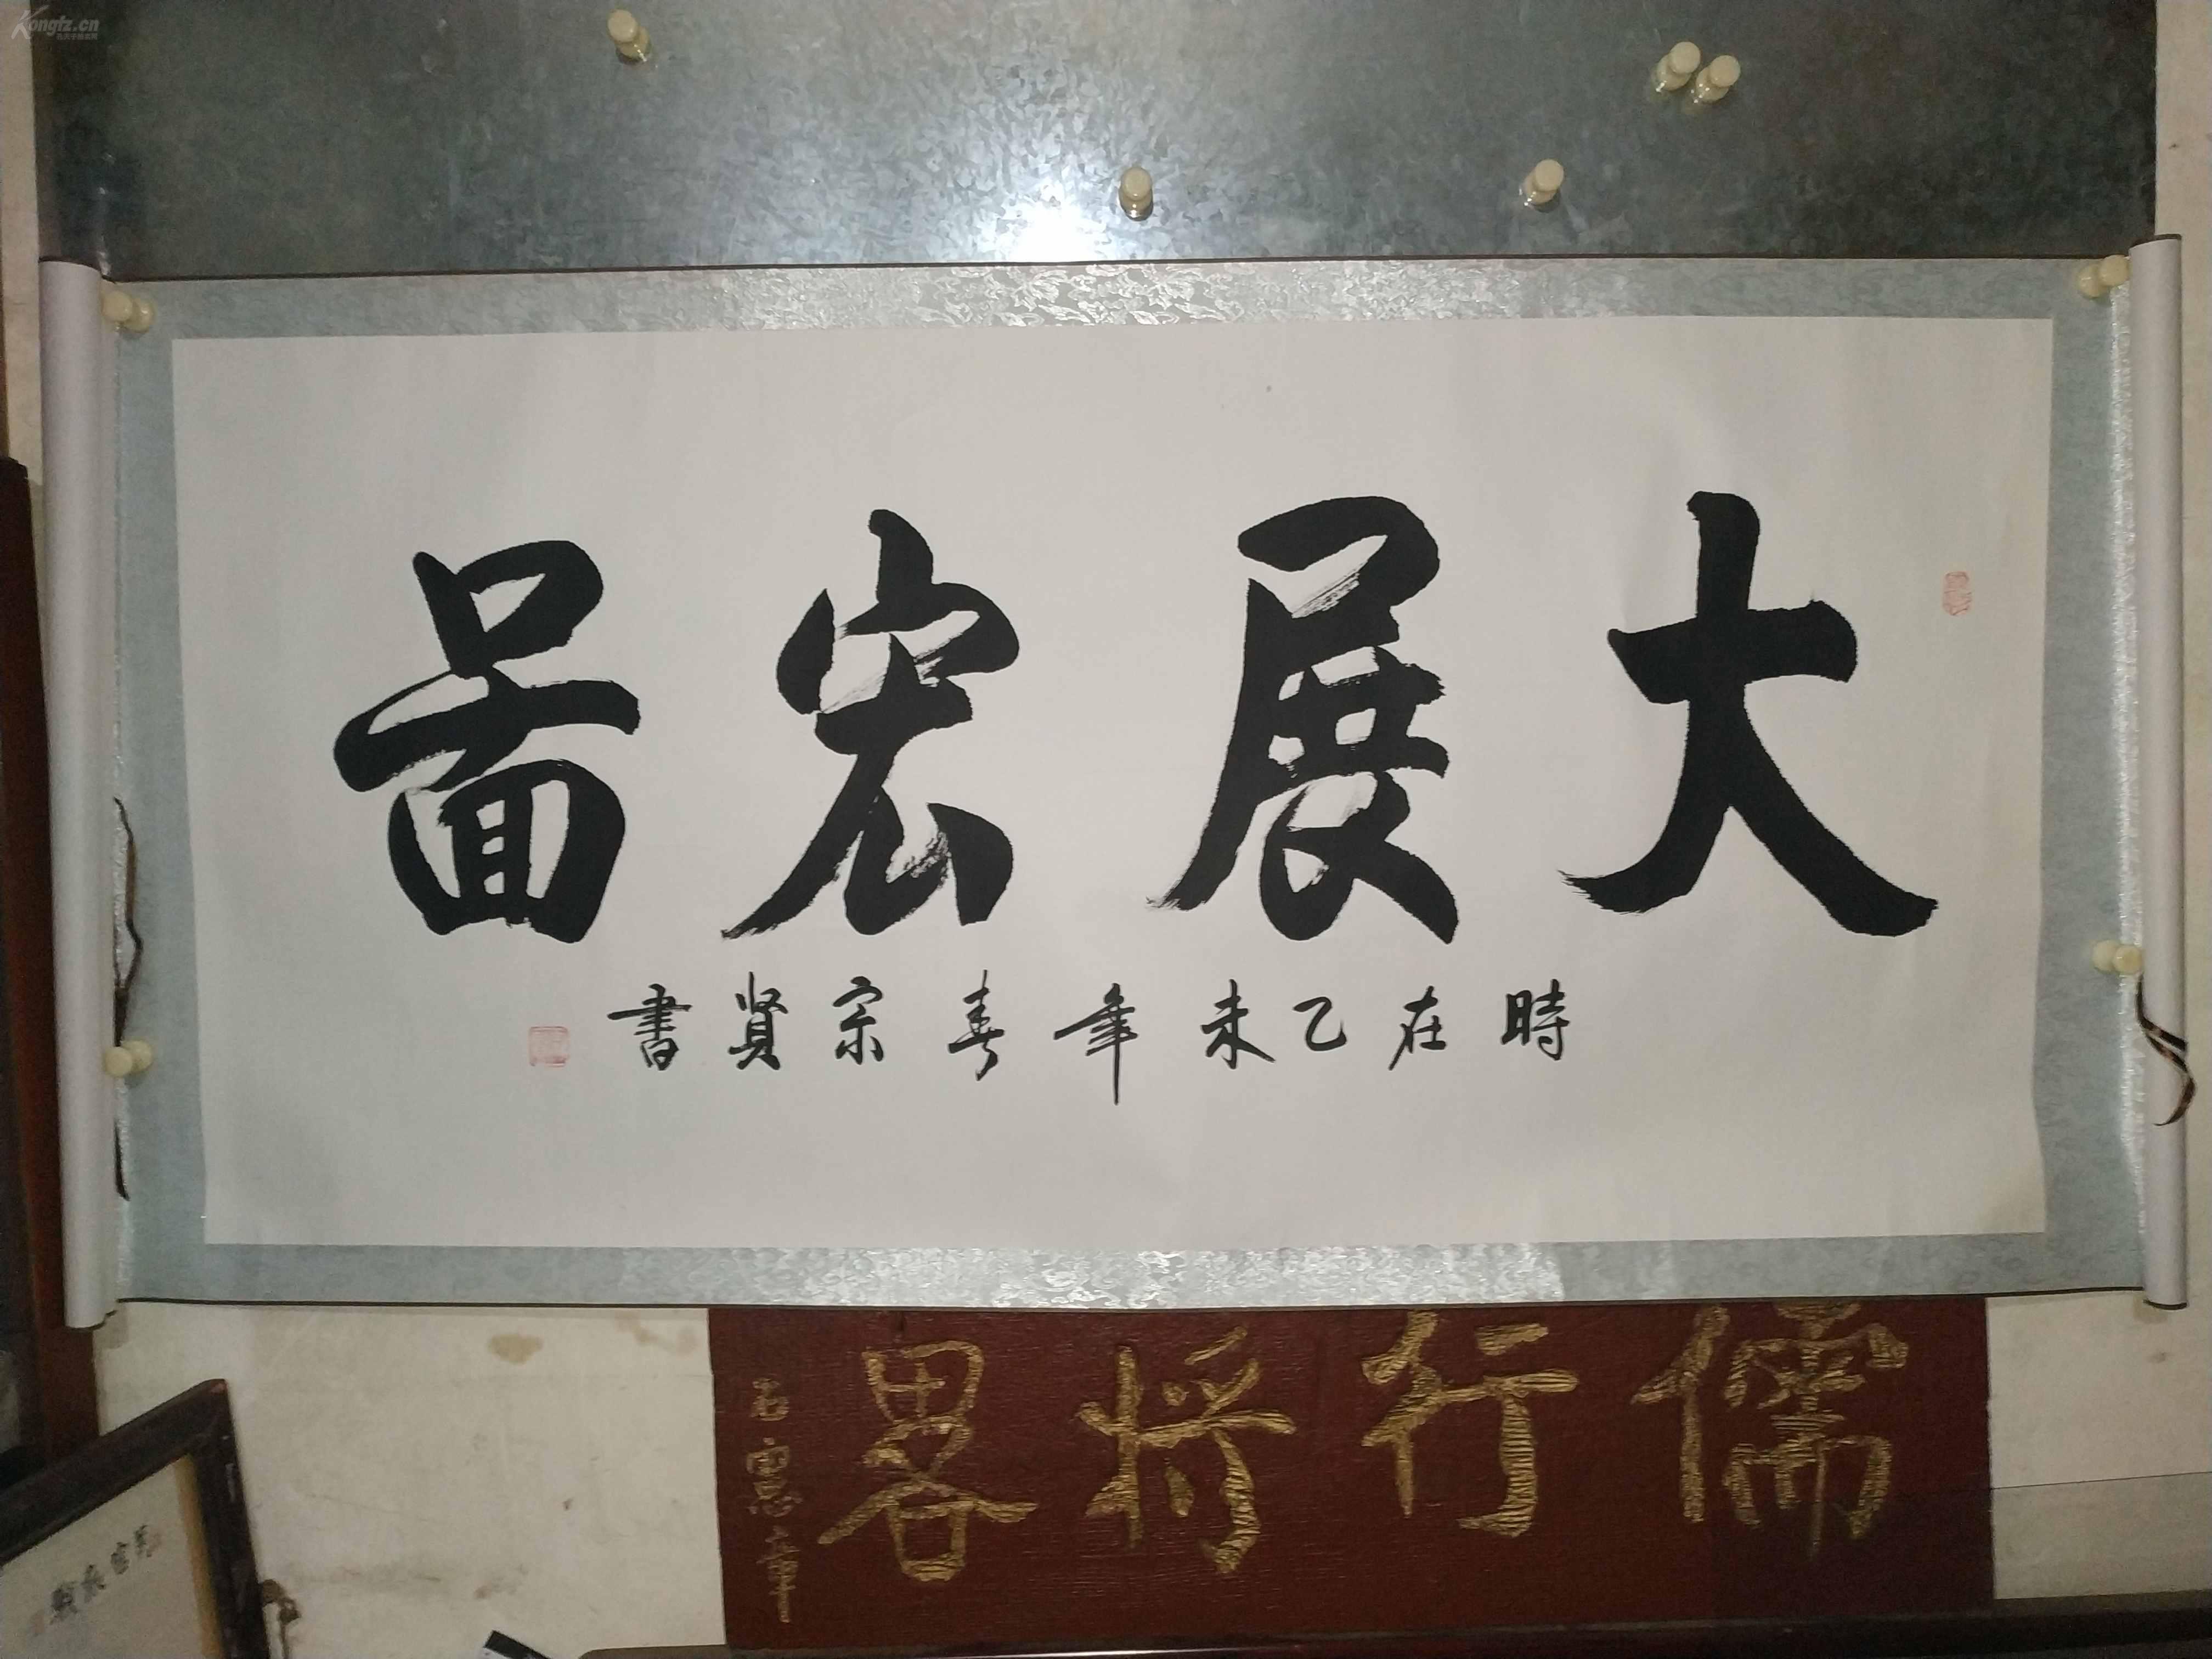 Kongfz.cn
大展宏圖
時在乙未年春宗賢書
儒行将畧